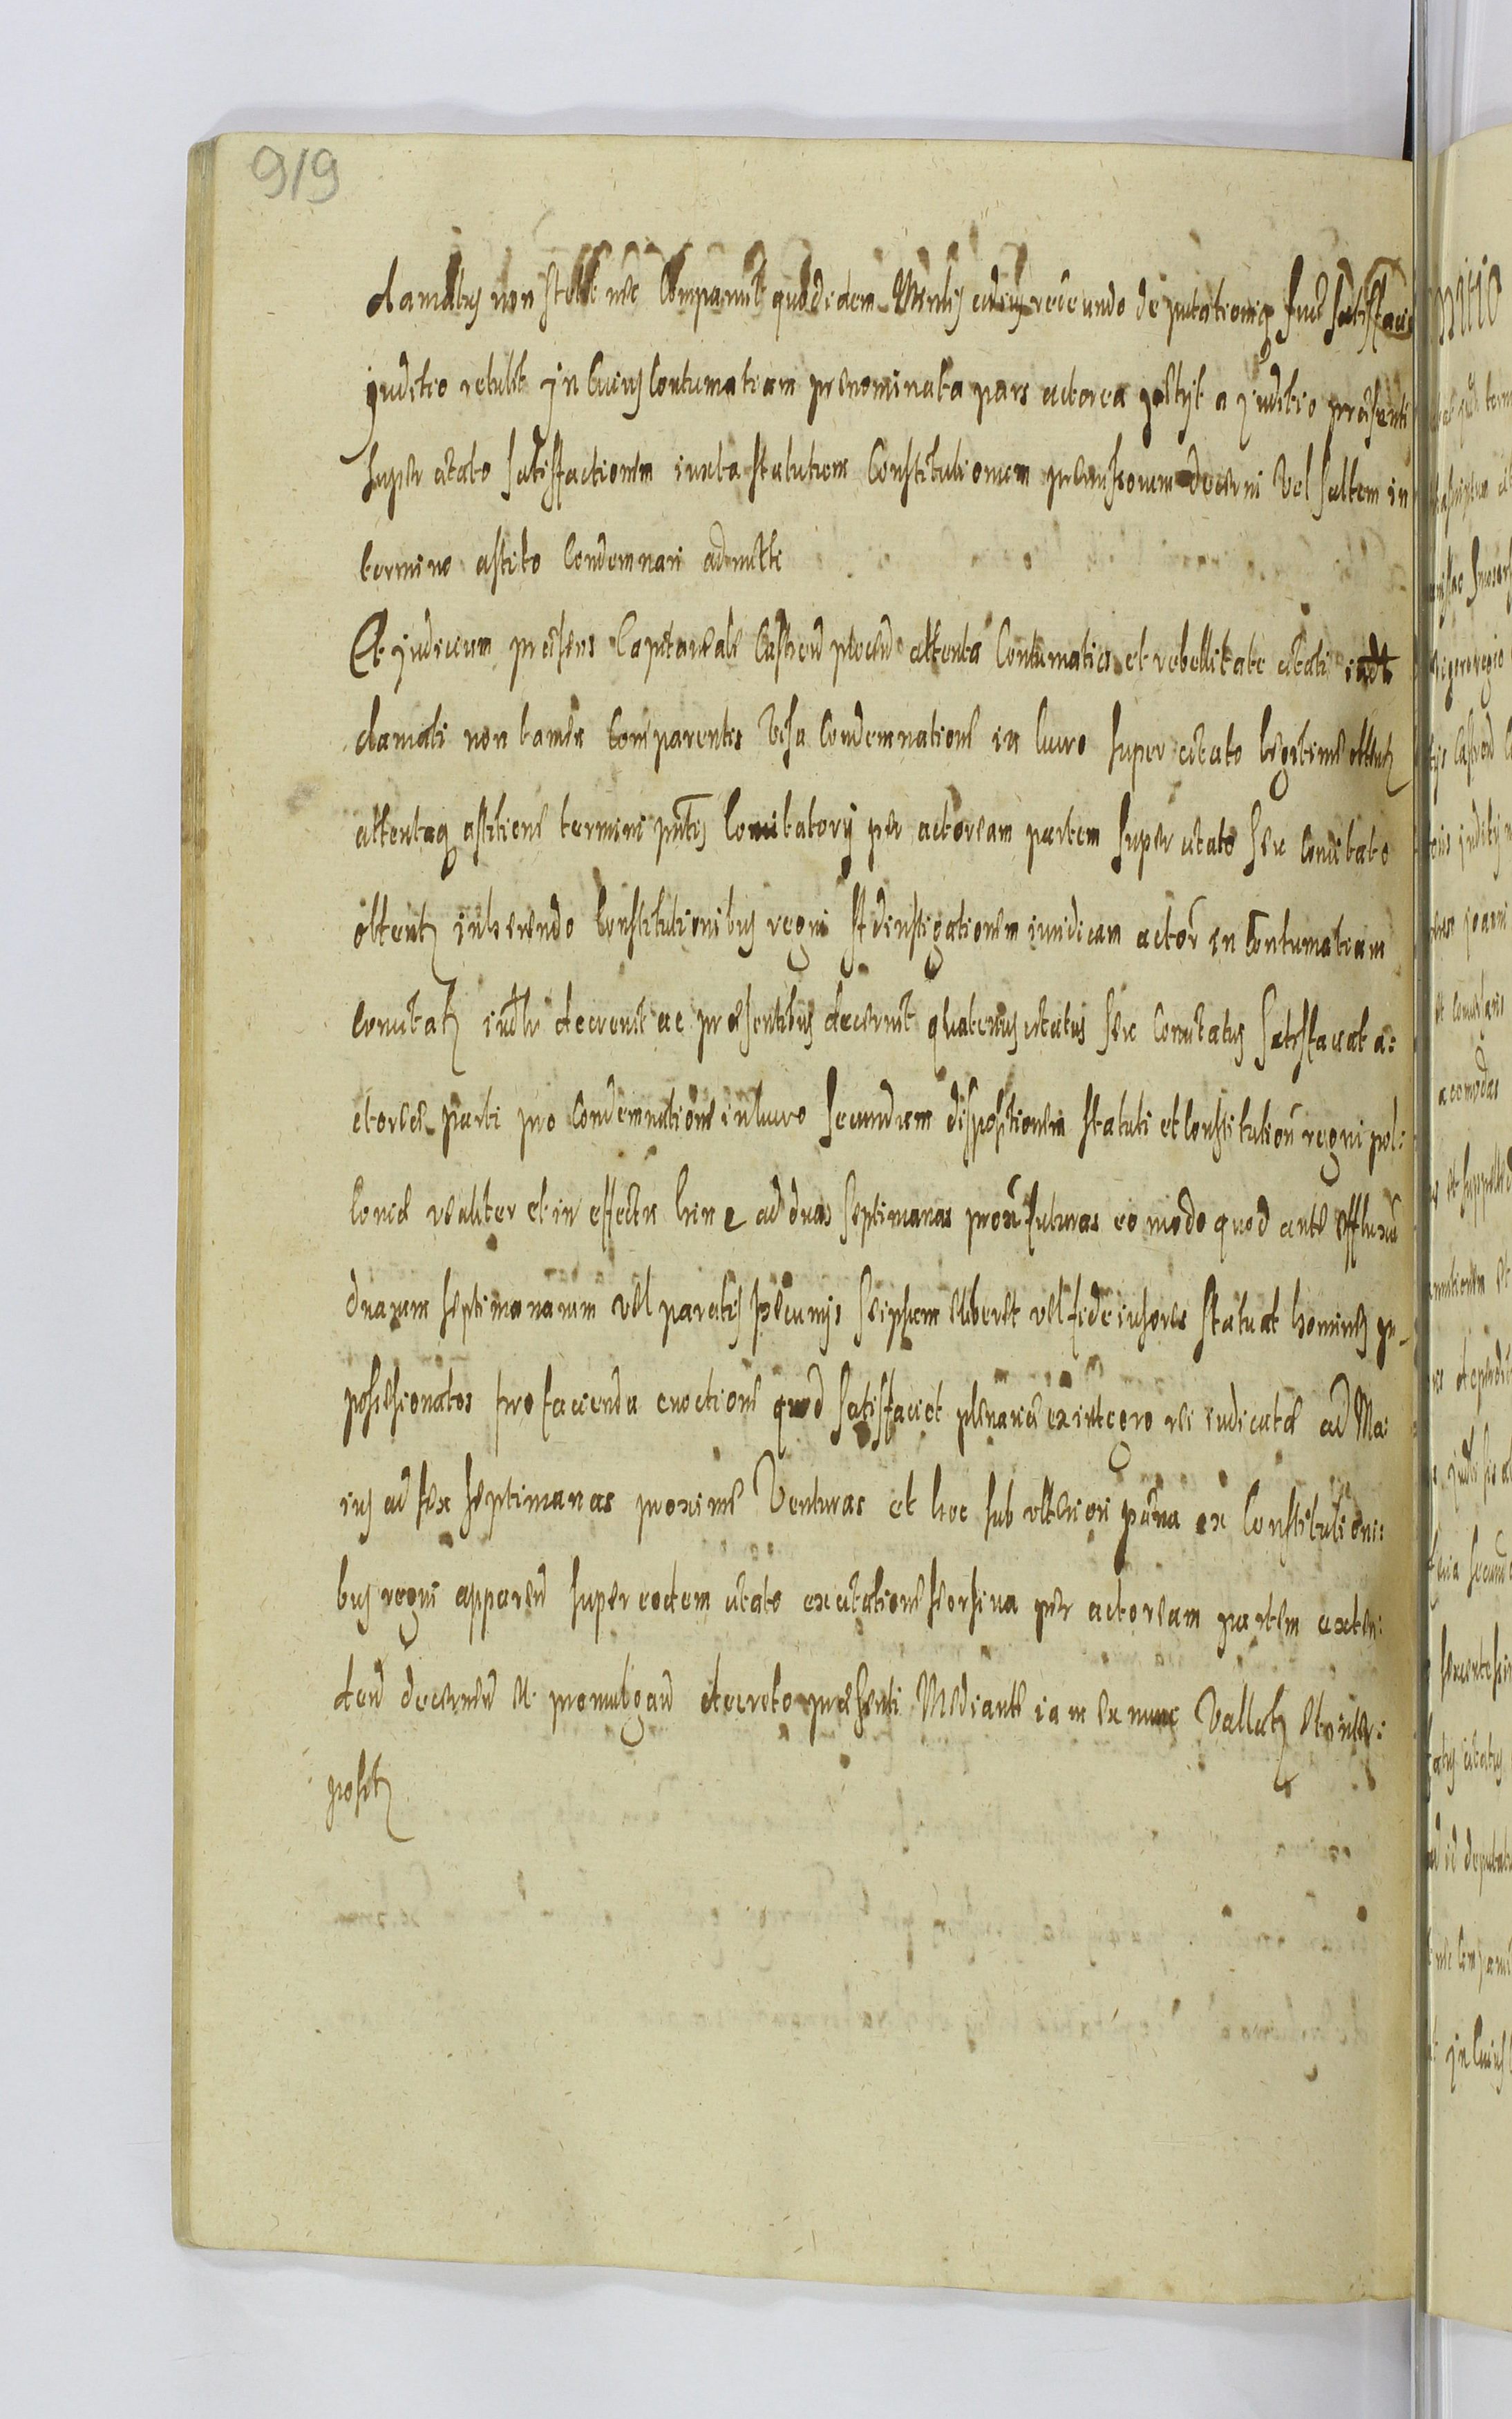 919
clamatus non stetit nec Comparuit quod idem Minlis ad eius recundo deputationiq suae satisfacie
Juditio retulit In Cuius Contumatiam praenominata pars actorea petyt a Juditio praesenti
super citato satisfactionem iuxta statutum Constitutionem decerni Vel saltem in
termino astito Condemnari admitti
Et Judicium praesens Capitaneale Castren attenta Contumatia et rebellitate citati iudt
clamati non tamen Comparentis Visa Condemnatione in lucro super citato legitime obtent
attentaq astitione termini pntis Comitatorij per actoream partem super citato seu Concitato
obtent inherendo Constitutionibus regni Ad instigationem iuridicam actor in Contumatiam
Concitat iudtr decrevit ac praesentibus decernit quatenus citatus seu Concitatus satisfaciat a:
ctoreae parti pro Condemnatione in lucro secundum dispositionem statuti et Constitution regni pol:
loniae realiter et in effectu hinc ad duas septimanas prox futuras eo modo quod ante effluxu
duarum septimanarum vel paratis pecunijs seipsum eliberet vel fideiusores statuat homines
posesionatos pro facienda exactione quod satisfaciet plenarie ex integro rei iudicatae ad Ma:
ius ad sex septimanas proxime Venturas et hoc sub ulteriori paena ex Constitutioni:
bus regni apparen super eodem citato excitatione seorsiva per actoream partem exten:
den decernen et promulgan decreto praesenti Mediante iam ex nunc Vallat et inter:
posit